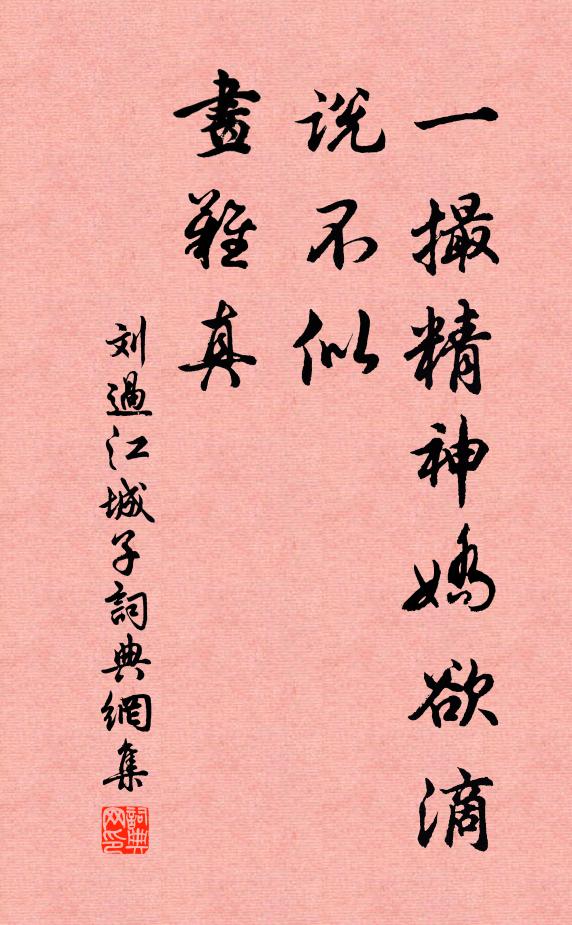 一撮精神嬌欲滴
説不似
畫難真
刘過江城子詞典網集
詞典
网印